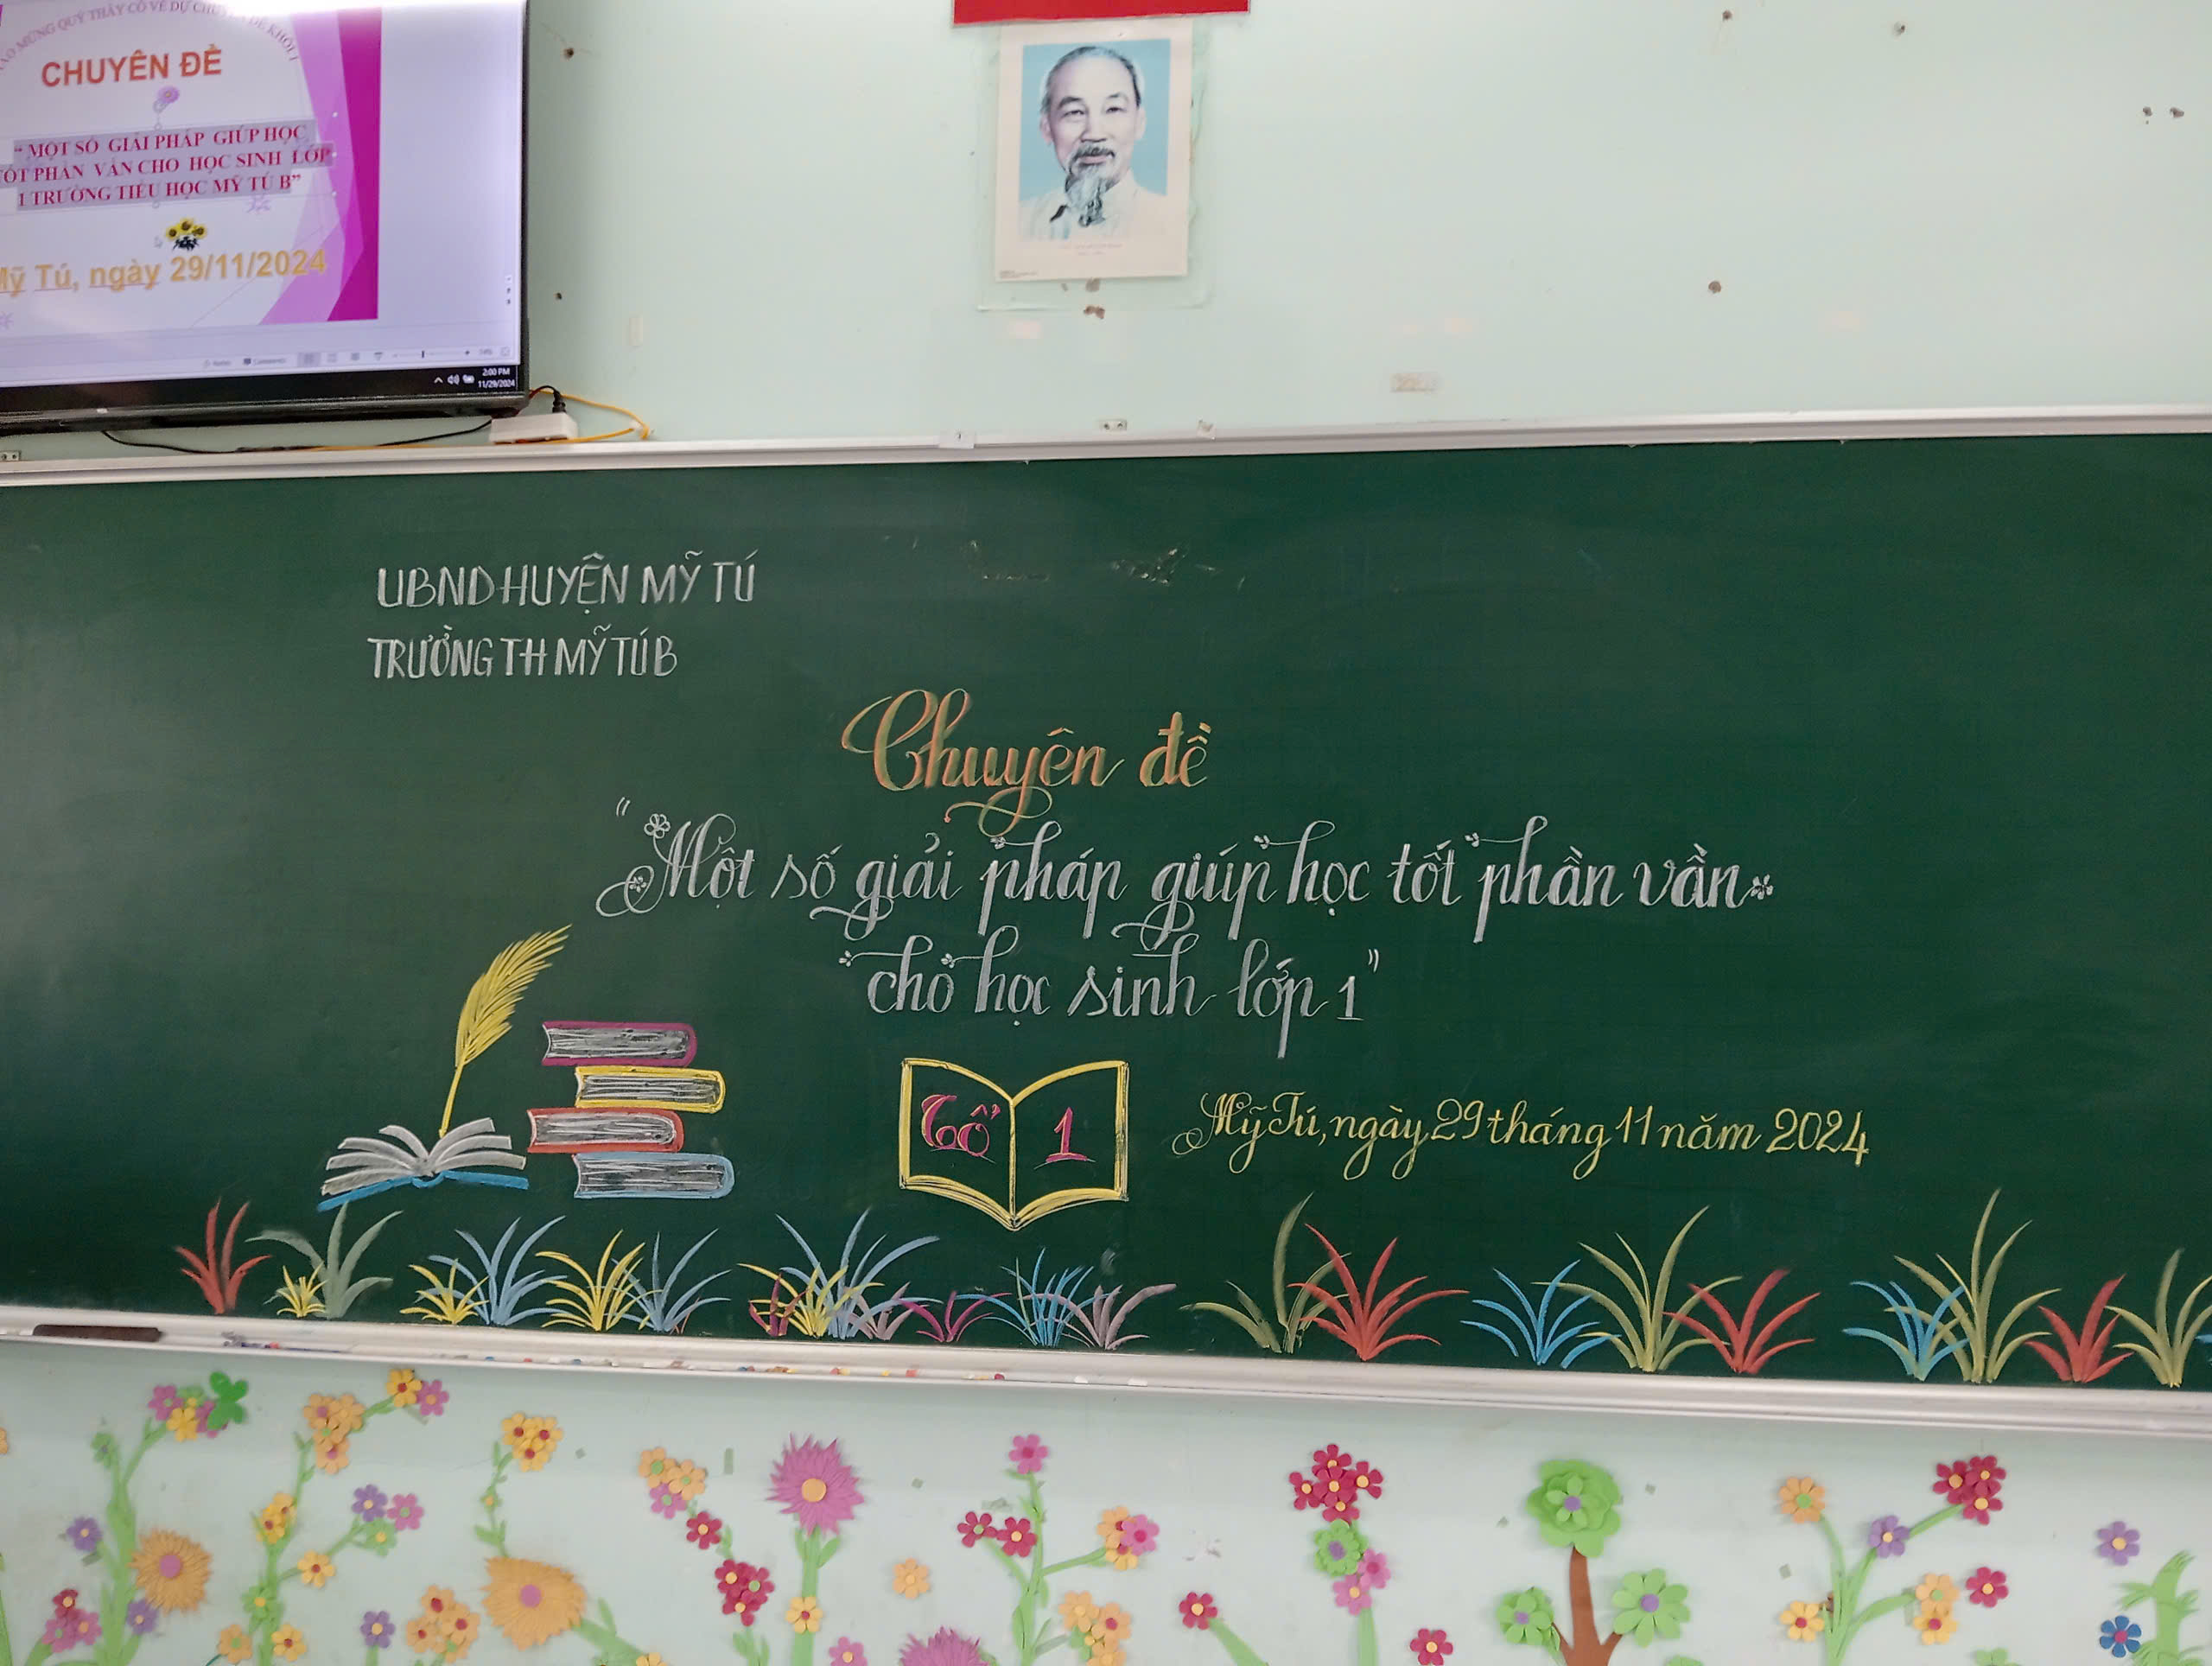 MỪNG QUÝ THẦY CÔ VỀ DỰ CHUYÊN ĐỀ KHỐI 1
CHUYÊN ĐỀ
“ MỘT SỐ GIẢI PHÁP GIÚP HỌC
TỐT PHẦN VẦN CHO HỌC SINH LỚP
1 TRƯỜNG TIỂU HỌC MỸ TÚ B”
Mỹ Tú, ngày 29/11/2024
2:00 PM
11/29/2024
UBND HUYỆN MỸ TÚ
TRƯỜNG TH MỸ TÚ B
Chuyên đề
“Một số giải pháp giúp học tốt phần vần
cho học sinh lớp 1”
Tổ 1
Mỹ Tú, ngày 29 tháng 11 năm 2024